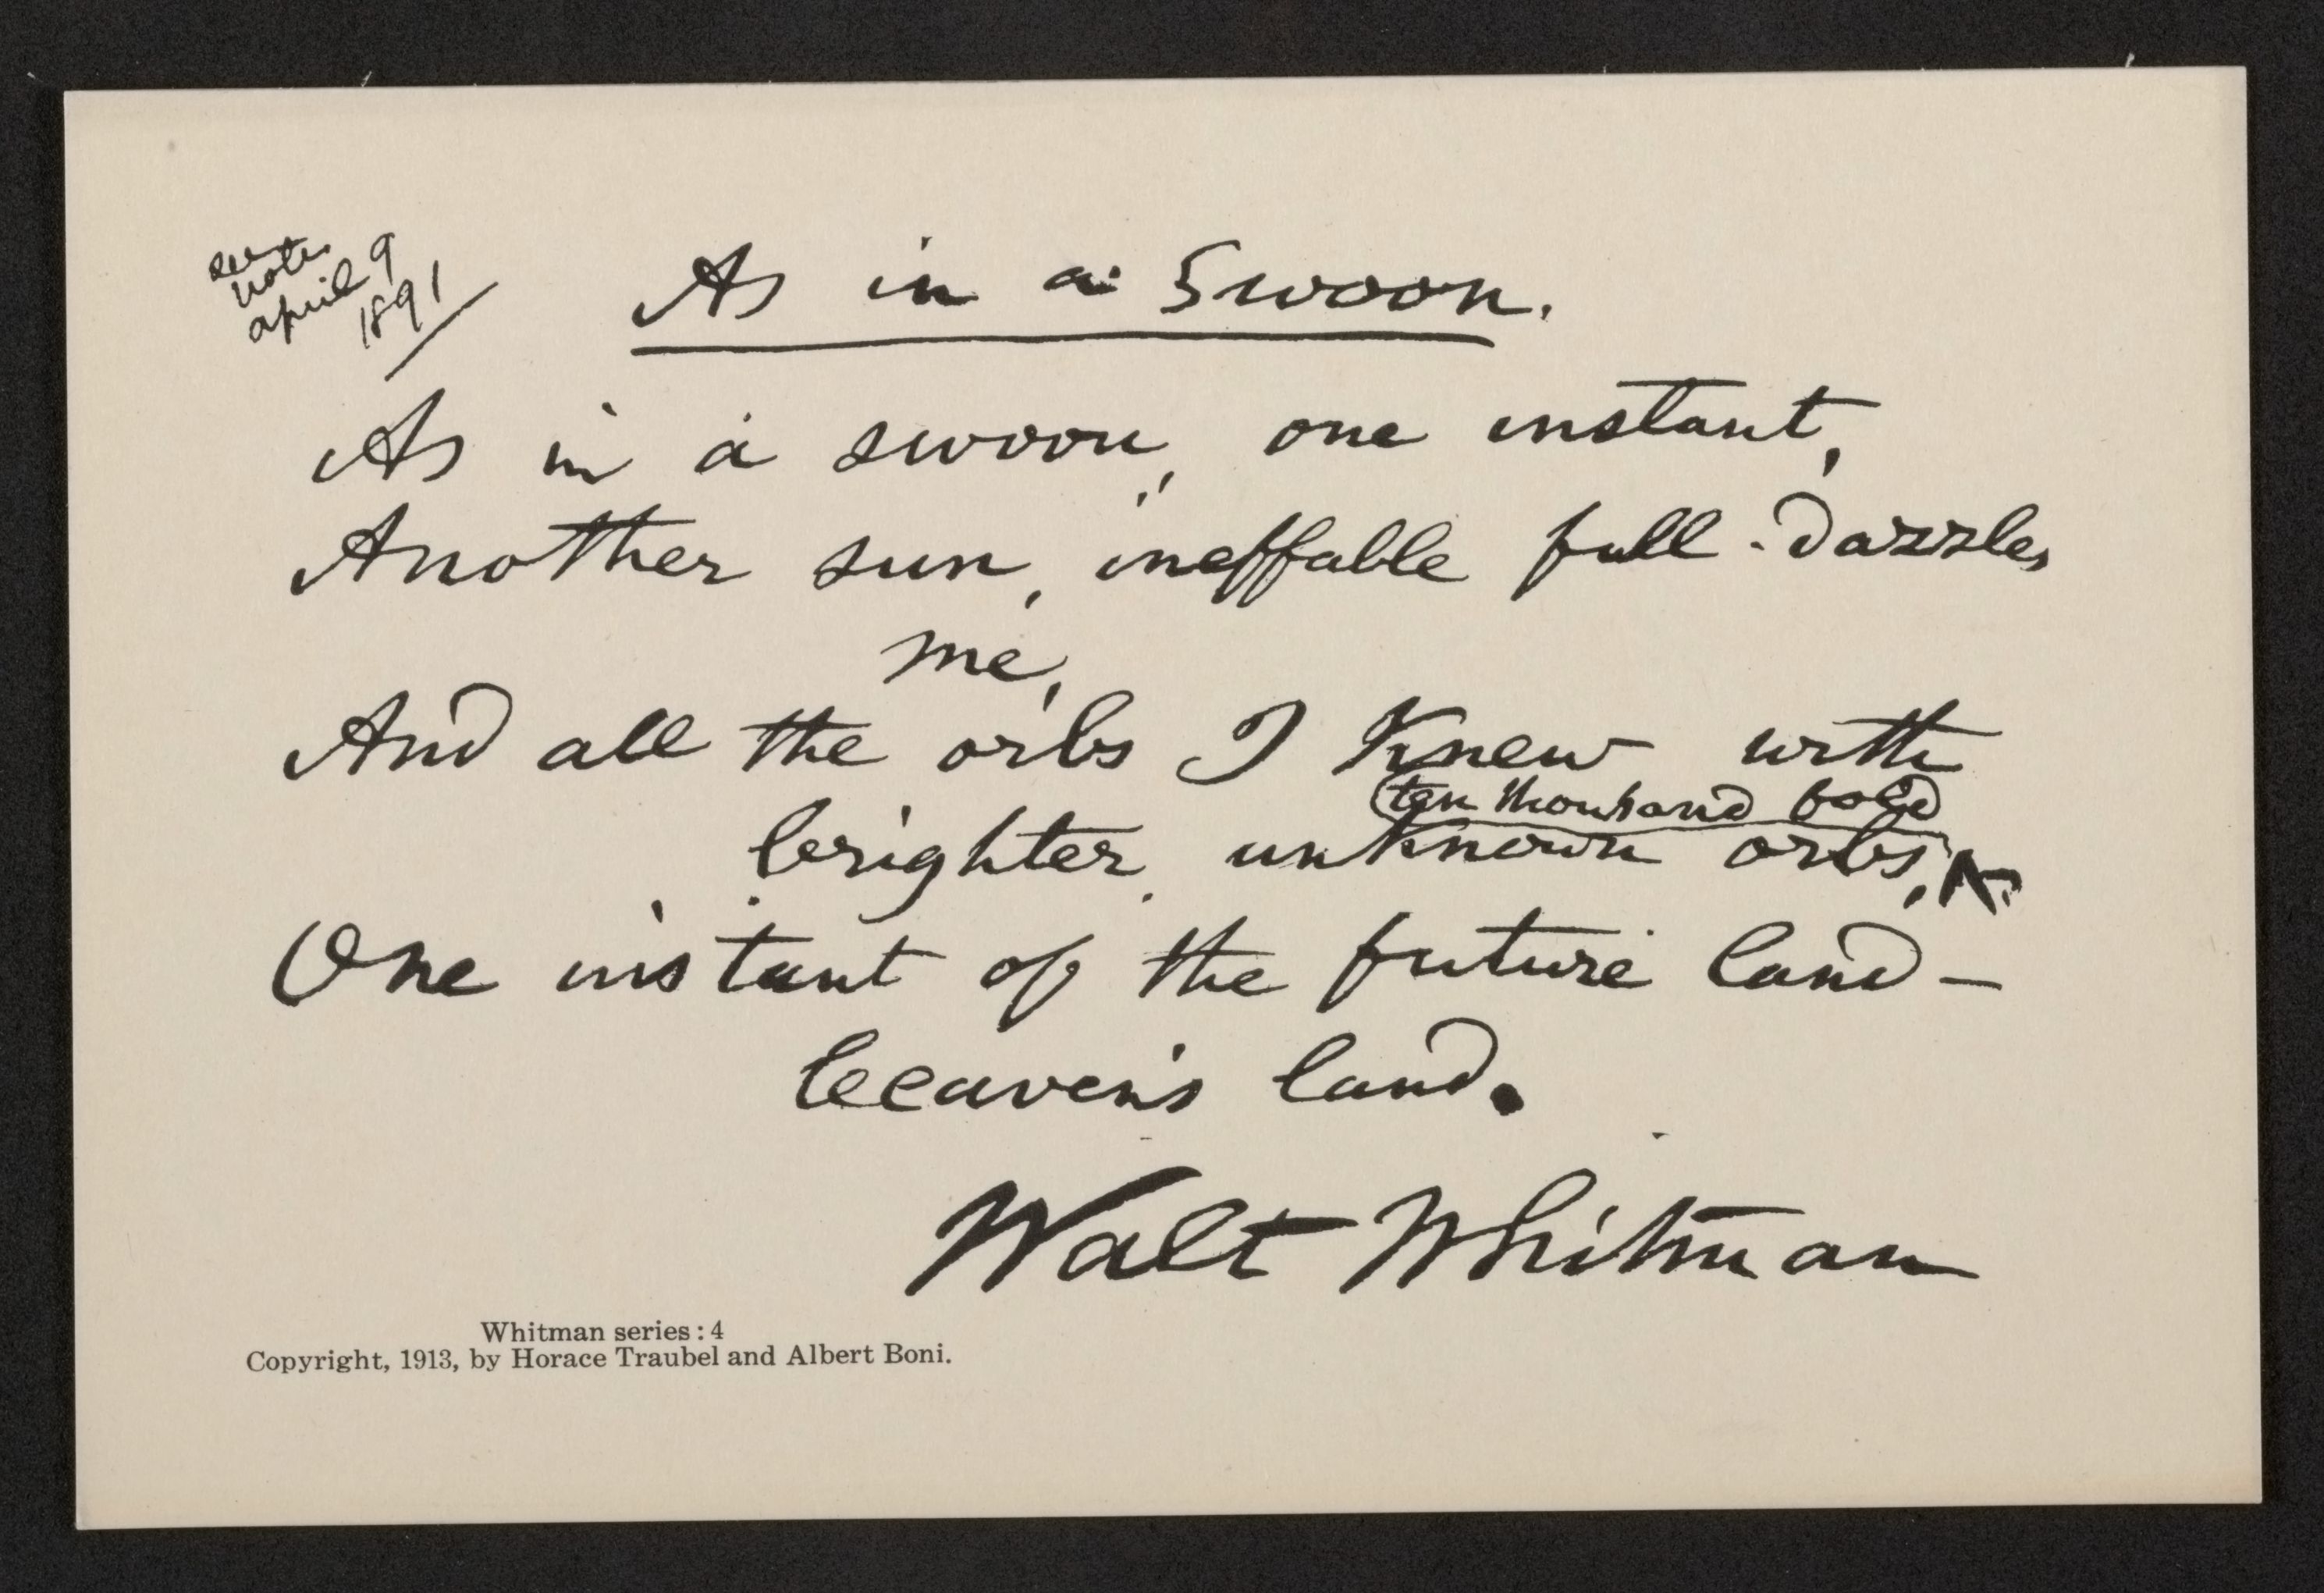 see
notes
april 9
1891
As in a Swoon.
As in a swoon, one instant,
Another sun, ineffable full-dazzles
me,
And all the orbs I Knew with
ten thousand fold
brighter, unKnown orbs,
One instant of the future land—
heaven's land.
Walt Whitman
Whitman series: 4
Copyright, 1913, by Horace Traubel and Albert Boni.